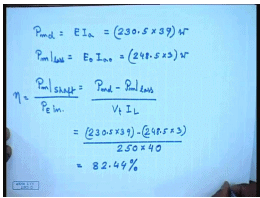 Pmd = E Ia = (230.5 × 39) W
Pm|loss = E₀ Ia₀ = (248.5 × 3) W
η = Pm|shaft / PE in. = Pmd − Pm|loss / Vt IL
= (230.5 × 39) − (248.5 × 3) / 250 × 40
= 82.44%